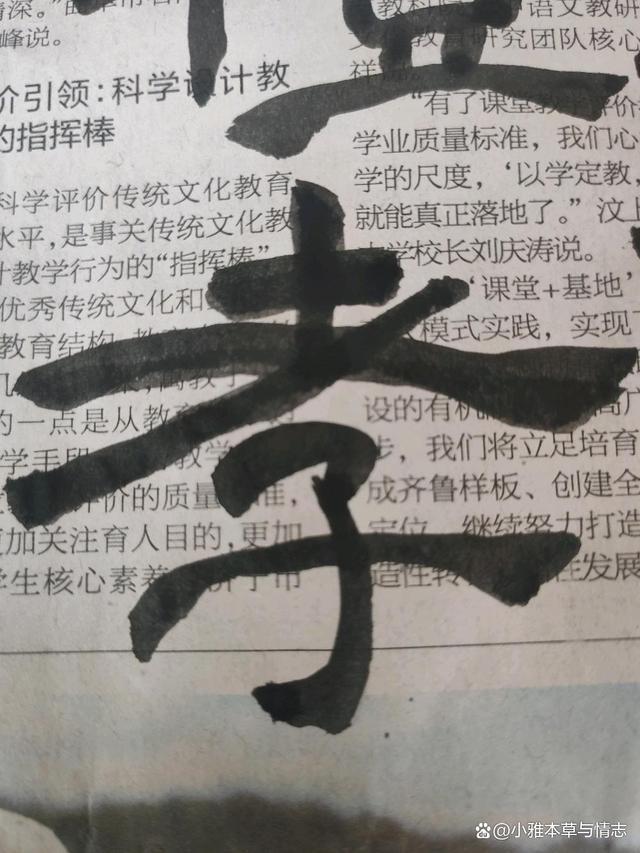 孝
峰说。
价引领：科学设计教
的指挥棒
科学评价传统文化教育
水平，是事关传统文化教
计教学行为的“指挥棒”
优秀传统文化和
教育结构
的一点是从教育
学手段
评价的质量
更加关注育人目的，更加
学生核心素养
语文教研
教育研究团队核心
“有了课堂教学评价
学业质量标准，我们心
学的尺度，‘以学定教，
就能真正落地了。”汶上
学校长刘庆涛说。
‘课堂+基地’
模式实践，实现了
设的有机
步，我们将立足培育
成齐鲁样板、创建全
定位，继续努力打造
造性转
性发展
@小雅本草与情志